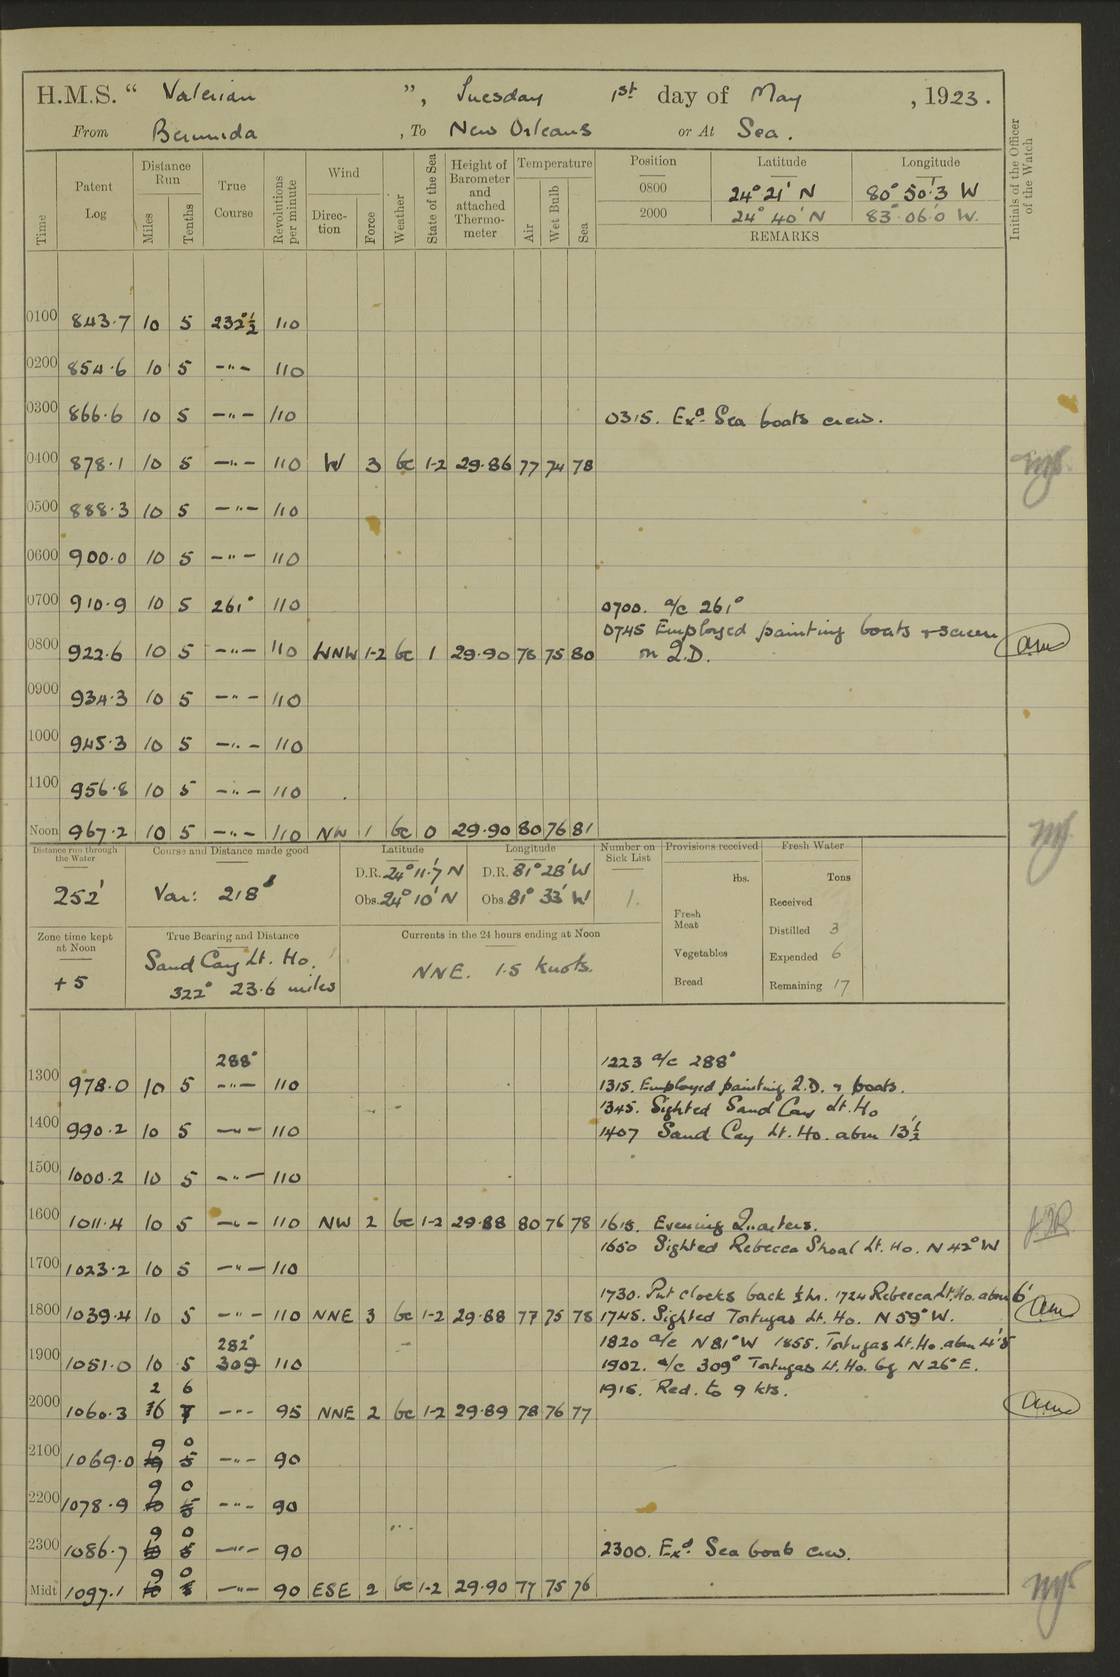 H.M.S. " Valerian ", Tuesday 1st day of May, 1923.
From Bermuda, To New Orleans or At Sea.
Time Patent Log Distance Run Miles Tenths True Course Revolutions per minute Wind Direction Force Weather State of the Sea Height of Barometer and attached Thermometer Temperature Air Wet Bulb Sea Position Latitude Longitude Initials of the Officer of the Watch
0800 24° 21' N 80° 50'.3 W
2000 24° 40' N 83° 06'.0 W.
REMARKS
0100 843.7 10 5 232°½ 110
0200 854.6 10 5 -"- 110
0300 866.6 10 5 -"- 110 0315. Exd. Sea boats crew.
0400 878.1 10 5 -"- 110 W 3 bc 1-2 29.86 77 74 78
0500 888.3 10 5 -"- 110
0600 900.0 10 5 -"- 110
0700 910.9 10 5 261° 110 0700. a/c 261°
0745 Employed painting boats + screen
0800 922.6 10 5 -"- 110 WNW 1-2 bc 1 29.90 78 75 80 on Q.D.
0900 934.3 10 5 -"- 110
1000 945.3 10 5 -"- 110
1100 956.8 10 5 -"- 110
Noon 967.2 10 5 -"- 110 NW 1 bc 0 29.90 80 76 81
Distance run through the Water Course and Distance made good Latitude Longitude Number on Sick List Provisions received Fresh Water
252' Var: 218 D.R. 24° 11'.7 N D.R. 81° 28' W lbs. Tons
Obs. 24° 10' N Obs. 81° 33' W 1. Received
Zone time kept at Noon True Bearing and Distance Currents in the 24 hours ending at Noon Fresh Meat Distilled 3
+5 Sand Cay Lt. Ho. NNE. 1.5 knots. Vegetables Expended 6
322° 23.6 miles Bread Remaining 17
288° 1223 a/c 288°
1300 978.0 10 5 -"- 110 1315. Employed painting Q.D. + boats.
1345. Sighted Sand Cay Lt. Ho
1400 990.2 10 5 -"- 110 1407 Sand Cay Lt. Ho. abm 13½
1500 1000.2 10 5 -"- 110
1600 1011.4 10 5 -"- 110 NW 2 bc 1-2 29.88 80 76 78 1615. Evening Quarters.
1650 Sighted Rebecca Shoal Lt. Ho. N 42° W
1700 1023.2 10 5 -"- 110
1730. Put clocks back ½ hr. 1724 Rebecca Lt. Ho. abm 6'
1800 1039.4 10 5 -"- 110 NNE 3 bc 1-2 29.88 77 75 78 1745. Sighted Tortugas Lt. Ho. N 59° W.
282° 1820 a/c N 81° W 1855. Tortugas Lt. Ho. abm 4'.5
1900 1051.0 10 5 309 110 1902. a/c 309° Tortugas Lt. Ho. bg N 26° E.
2 6 1915. Red. to 9 kts.
2000 1060.3 16 7 -"- 95 NNE 2 bc 1-2 29.89 78 76 77
9 0
2100 1069.0 10 5 -"- 90
9 0
2200 1078.9 10 5 -"- 90
9 0
2300 1086.7 10 5 -"- 90 2300. Exd. Sea boats crew.
9 0
Midt 1097.1 10 5 -"- 90 ESE 2 bc 1-2 29.90 77 75 76